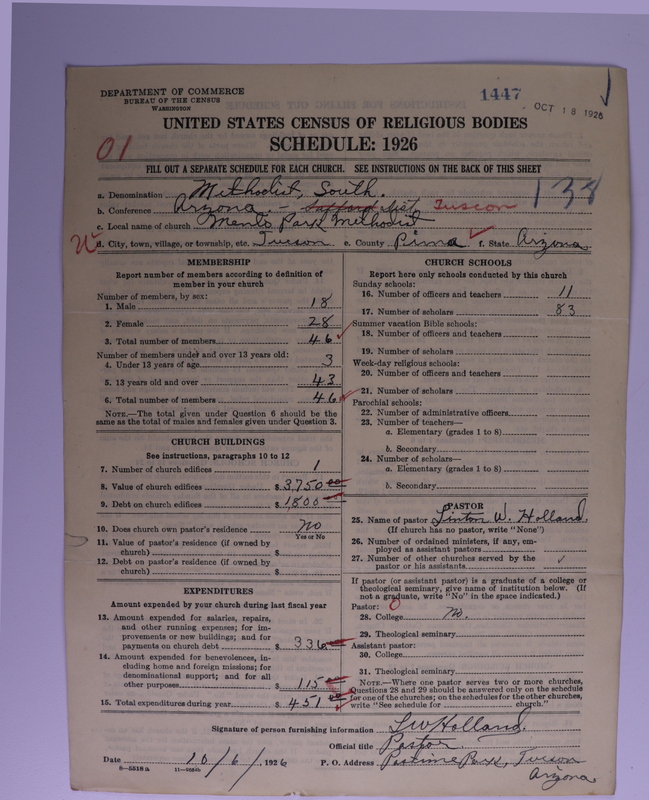 DEPARTMENT OF COMMERCE
BUREAU OF THE CENSUS
WASHINGTON
1447
OCT 18 1926
UNITED STATES CENSUS OF RELIGIOUS BODIES
SCHEDULE: 1926
01
FILL OUT A SEPARATE SCHEDULE FOR EACH CHURCH. SEE INSTRUCTIONS ON THE BACK OF THIS SHEET
138
a. Denomination Methodist, South.
b. Conference Arizona - Safford Dist. Tuscon
c. Local name of church Menlo Park Methodist
d. City, town, village, or township, etc. Tucson e. County Pima f. State Arizona.
MEMBERSHIP
Report number of members according to definition of member in your church
Number of members, by sex:
1. Male 18
2. Female 28
3. Total number of members 46
Number of members under and over 13 years old:
4. Under 13 years of age 3
5. 13 years old and over 43
6. Total number of members 46
NOTE.—The total given under Question 6 should be the
same as the total of males and females given under Question 3.
CHURCH BUILDINGS
See instructions, paragraphs 10 to 12
7. Number of church edifices 1
8. Value of church edifices $ 3,750 00
9. Debt on church edifices $ 1,800
10. Does church own pastor's residence No
Yes or No
11. Value of pastor's residence (if owned by
church) $
12. Debt on pastor's residence (if owned by
church) $
EXPENDITURES
Amount expended by your church during last fiscal year
13. Amount expended for salaries, repairs,
and other running expenses; for im-
provements or new buildings; and for
payments on church debt $ 336
14. Amount expended for benevolences, in-
cluding home and foreign missions; for
denominational support; and for all
other purposes $ 115
15. Total expenditures during year $ 451 00
CHURCH SCHOOLS
Report here only schools conducted by this church
Sunday schools:
16. Number of officers and teachers 11
17. Number of scholars 83
Summer vacation Bible schools:
18. Number of officers and teachers
19. Number of scholars
Week-day religious schools:
20. Number of officers and teachers
21. Number of scholars
Parochial schools:
22. Number of administrative officers
23. Number of teachers—
a. Elementary (grades 1 to 8)
b. Secondary
24. Number of scholars—
a. Elementary (grades 1 to 8)
b. Secondary
PASTOR
25. Name of pastor Linton W. Holland.
(If church has no pastor, write "None")
26. Number of ordained ministers, if any, em-
ployed as assistant pastors
27. Number of other churches served by the
pastor or his assistants
If pastor (or assistant pastor) is a graduate of a college or
theological seminary, give name of institution below. (If
not a graduate, write "No" in the space indicated.)
Pastor: 0
28. College No.
29. Theological seminary
Assistant pastor:
30. College
31. Theological seminary
NOTE.—Where one pastor serves two or more churches,
Questions 28 and 29 should be answered only on the schedule
for one of the churches; on the schedules for the other churches,
write "See schedule for church."
Signature of person furnishing information L W Holland.
Official title Pastor
Date 10/6/, 1926 P. O. Address Pastime Park, Tucson
Arizona.